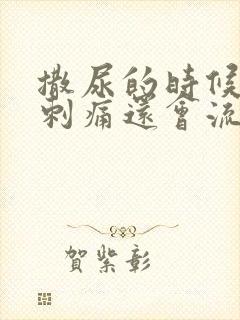 撒尿的時候
刺痛還會流
賀紫彰